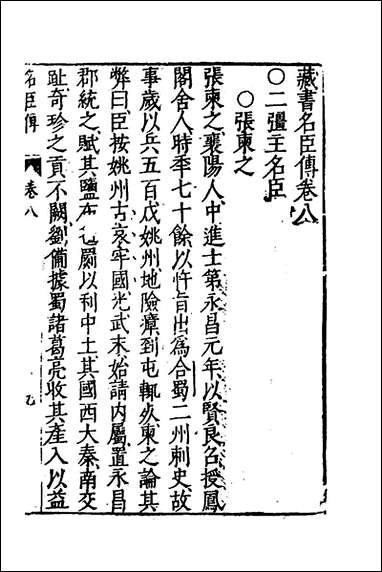 藏書名臣傳卷八
○二彊主名臣
○張柬之
張柬之襄陽人中進士第永昌元年以賢良召授鳳
閣舍人時年七十餘以忤旨出爲合蜀二州刺史故
事歲以兵五百戍姚州地險瘴到屯輒死柬之論其
弊曰臣按姚州古哀牢國光武末始請内屬置永昌
郡統之賦其鹽布氊罽以利中土其國西大秦南交
趾奇珍之貢不闕劉備據蜀諸葛亮收其產入以益
名臣傳
卷八